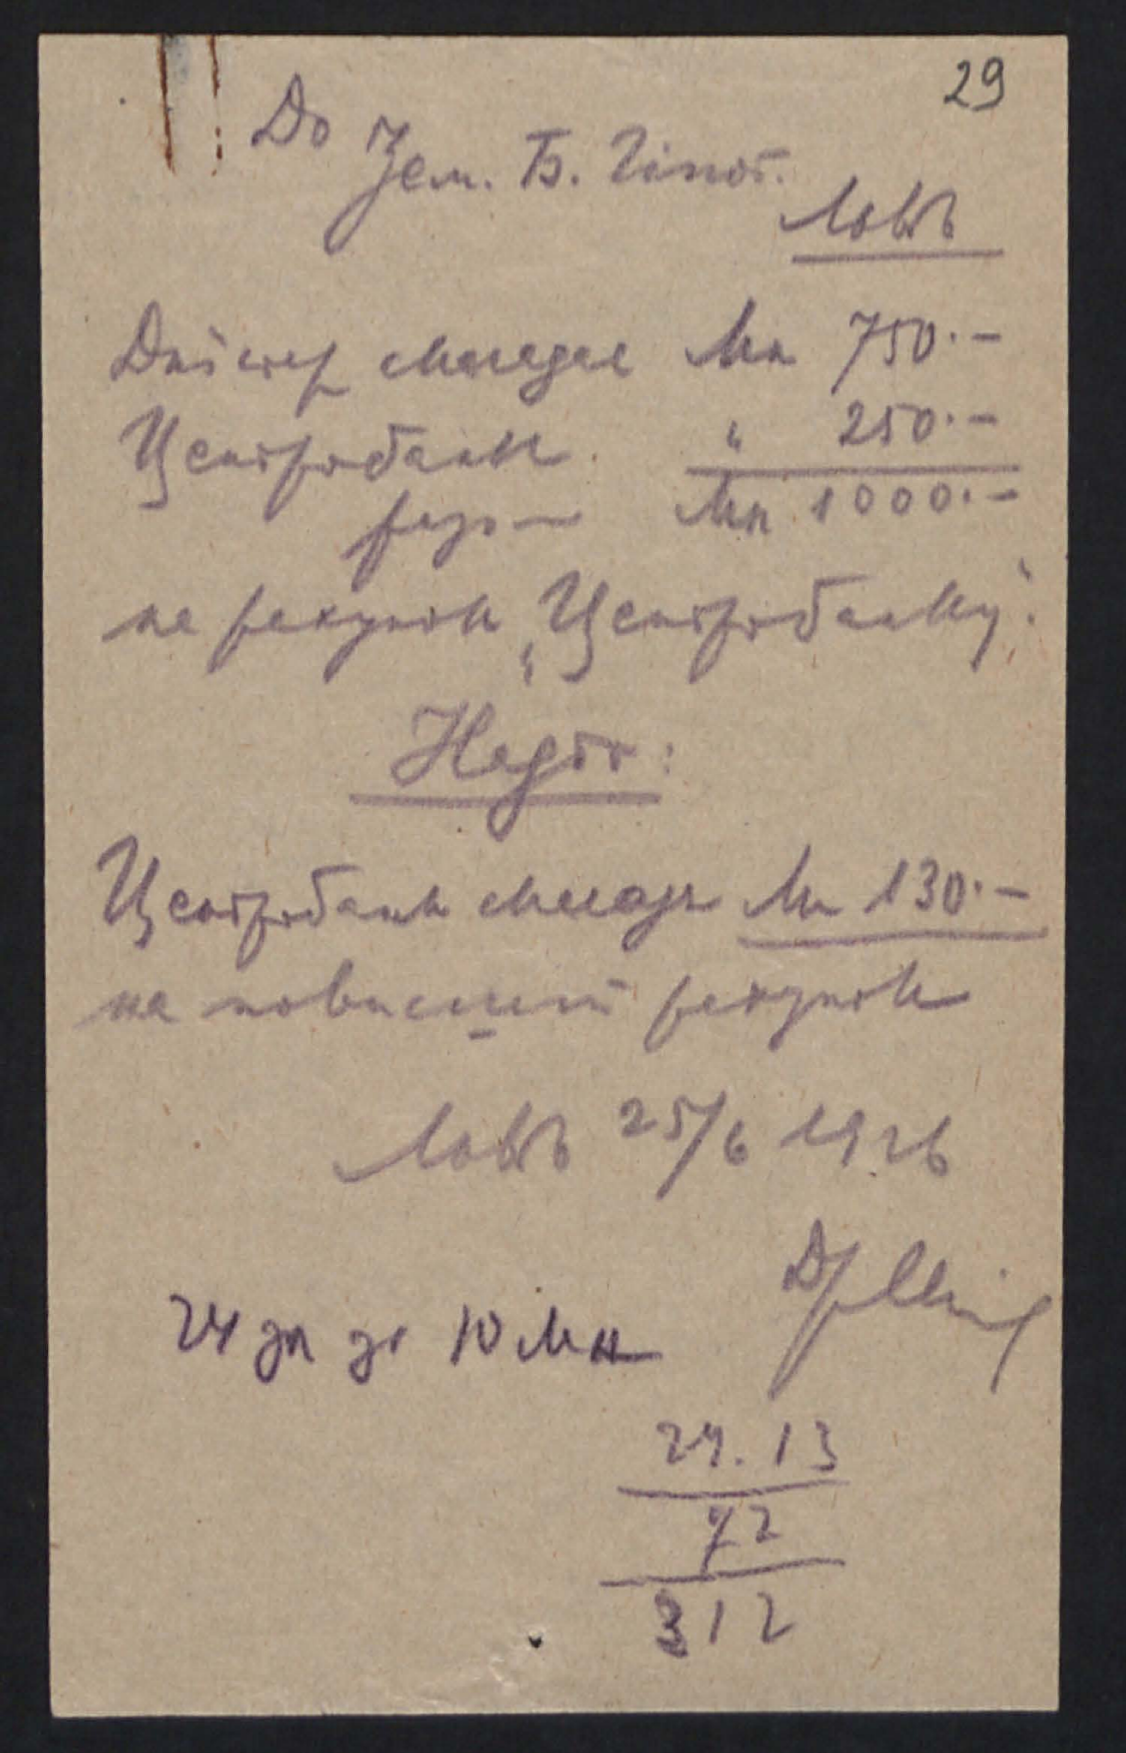 29
До Зем. Б. Гіпот.
Львів
Дністер складає Мк 750.—
Центробанк „ 250.—
разом Мк 1000.—
на рахунок „Центробанку".
Надто:
Центробанк складає Мк 130.—
на повисший рахунок
Львів 25/6 1926
Др
24 до 10 Мк
24.13
72
312